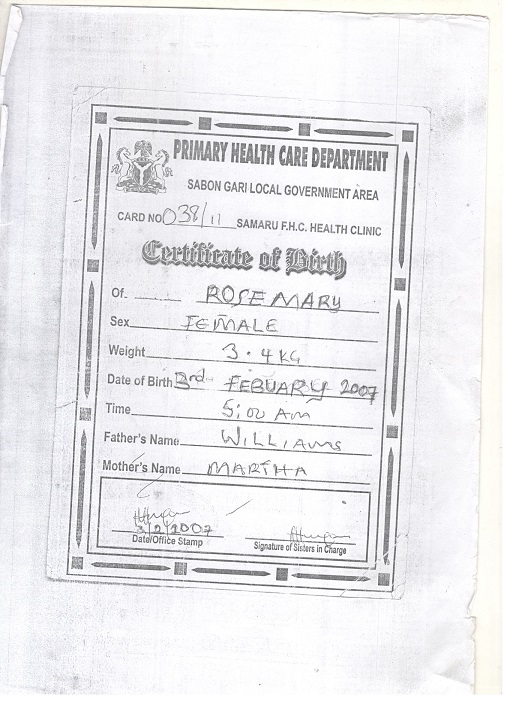 PRIMARY HEALTH CARE DEPARTMENT
SABON GARI LOCAL GOVERNMENT AREA
CARD NO 038/11 SAMARU F.H.C. HEALTH CLINIC
Certificate of Birth
Of. ROSEMARY
Sex FEMALE
Weight 3.4KG
Date of Birth 3rd FEBUARY 2007
Time 5:00 AM
Father's Name WILLIAMS
Mother's Name MARTHA
3/2/2007
Date/Office Stamp Signature of Sisters in Charge